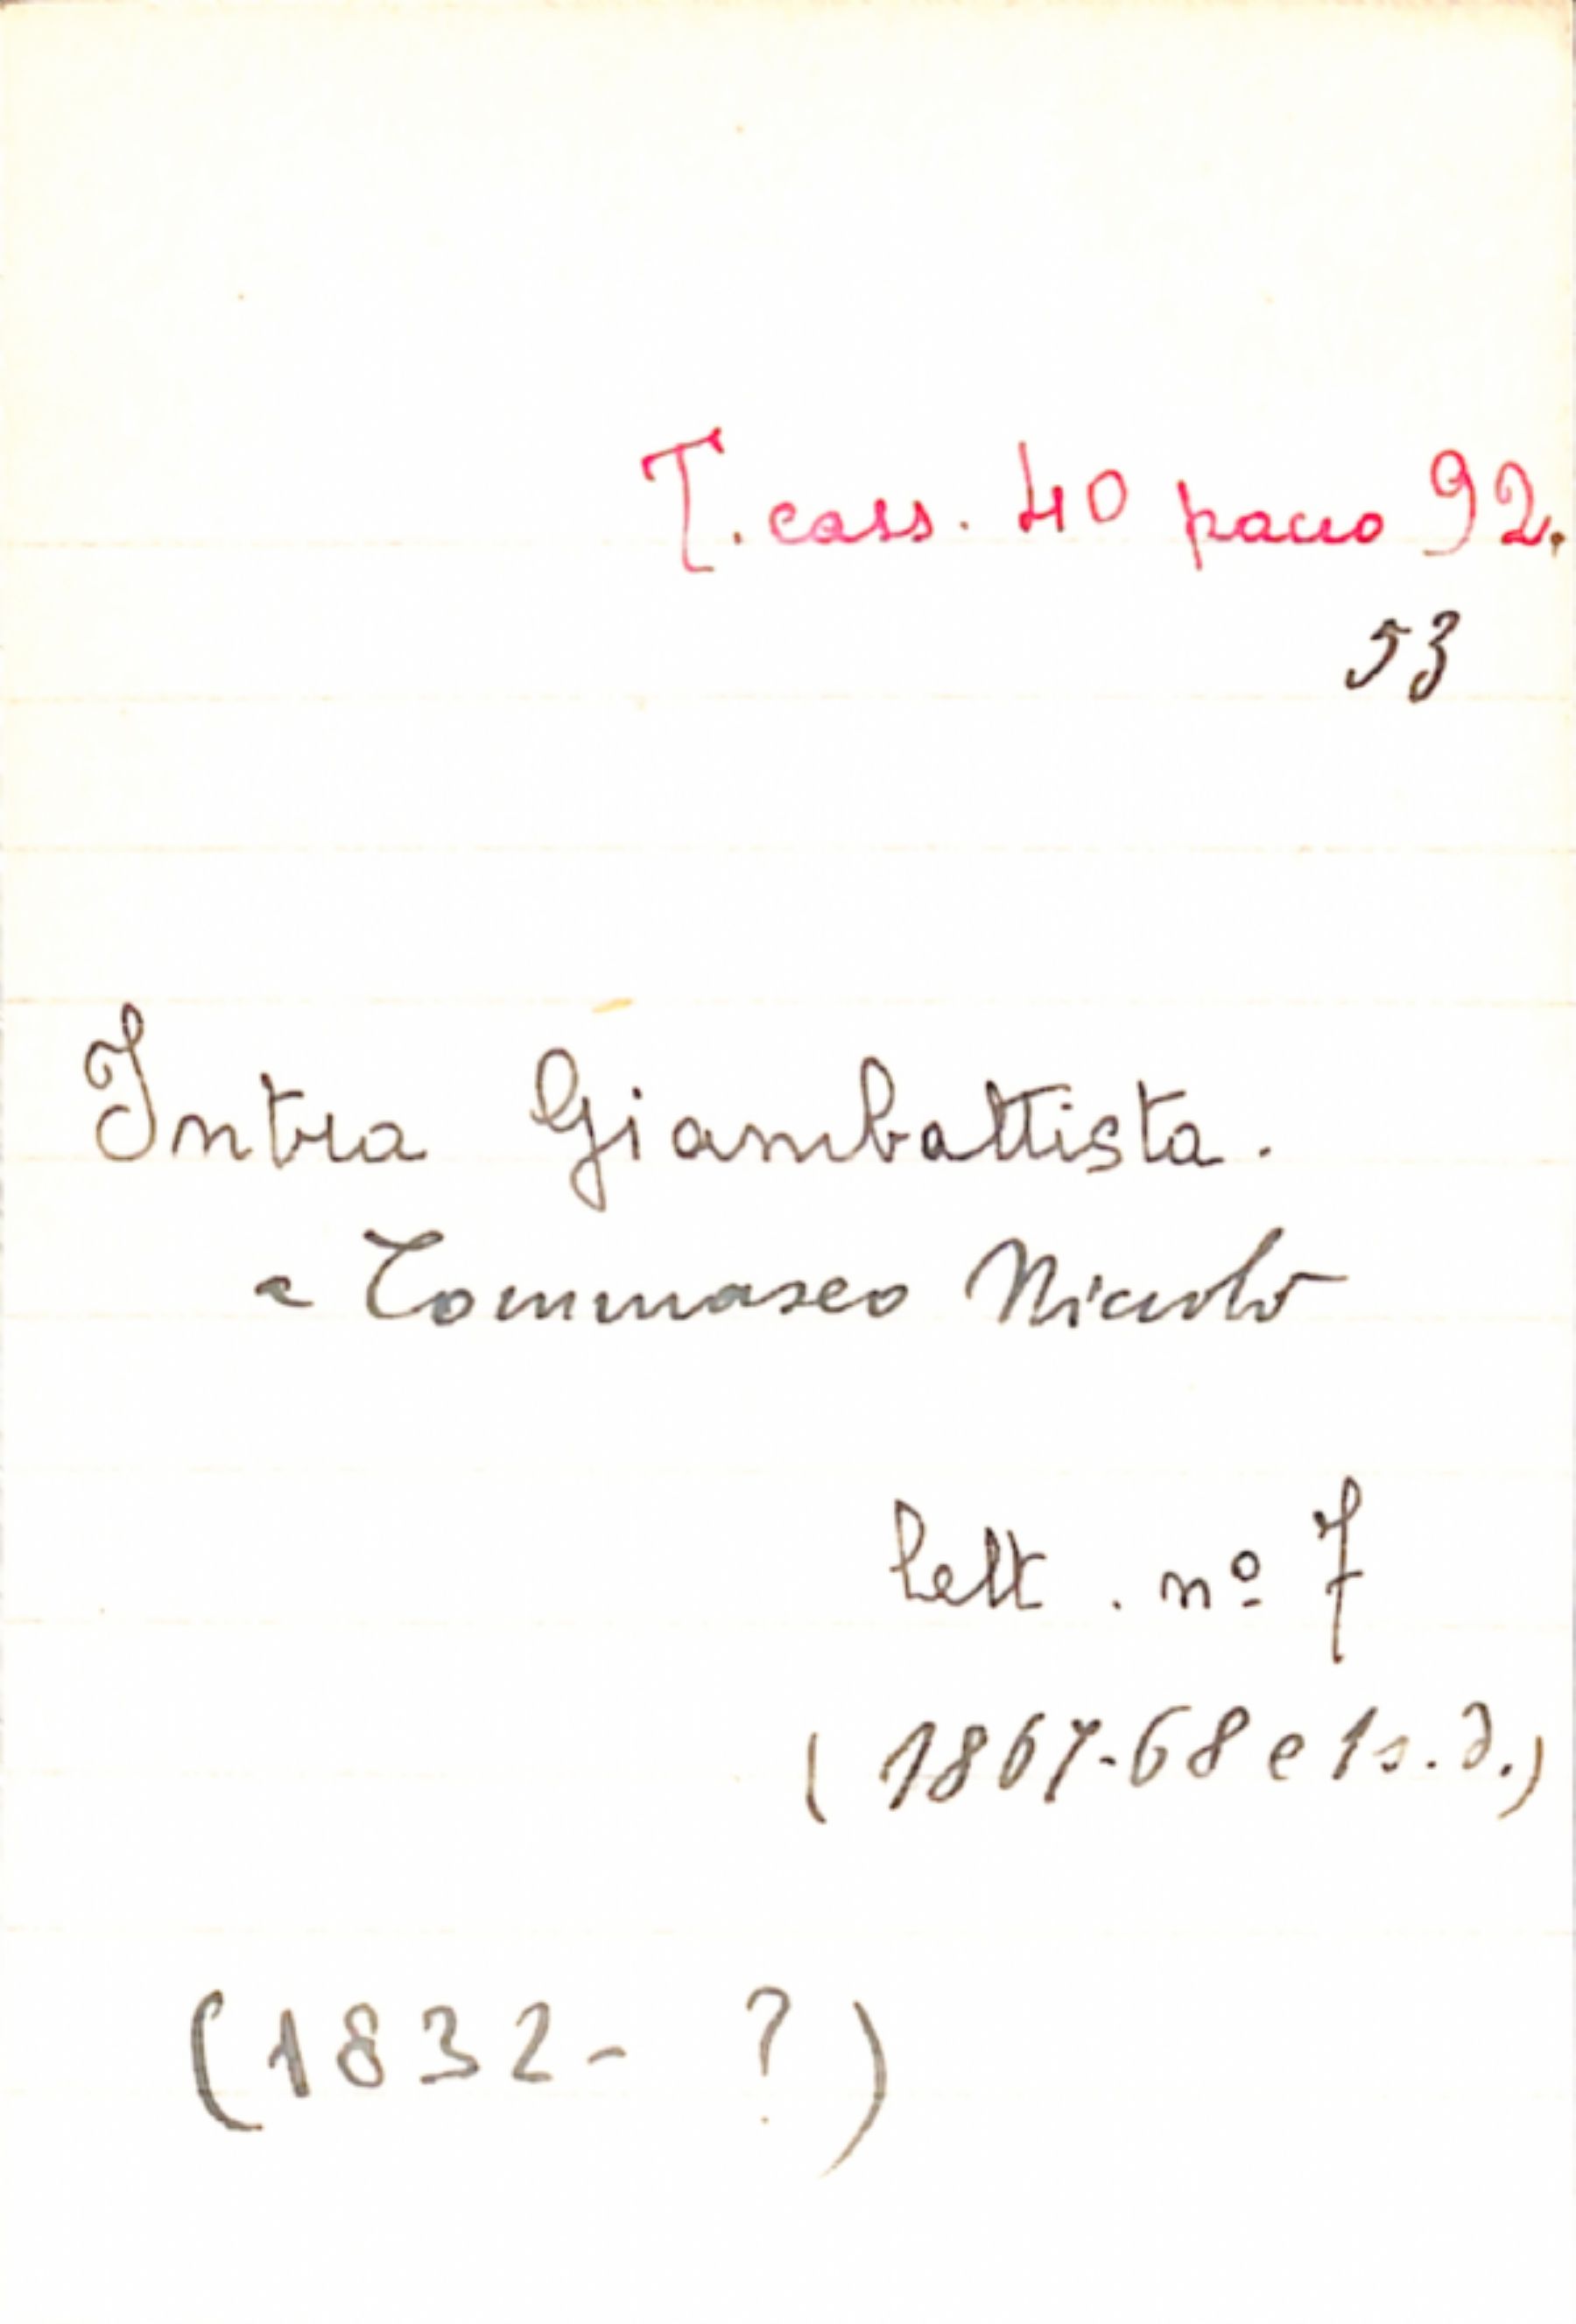 T. cass. 40 pacco 92.
53
Intra Giambattista.
a Tommaseo Niccolò
lett. nº 7
(1867-68 e 1 s.d.)
(1832- ?)